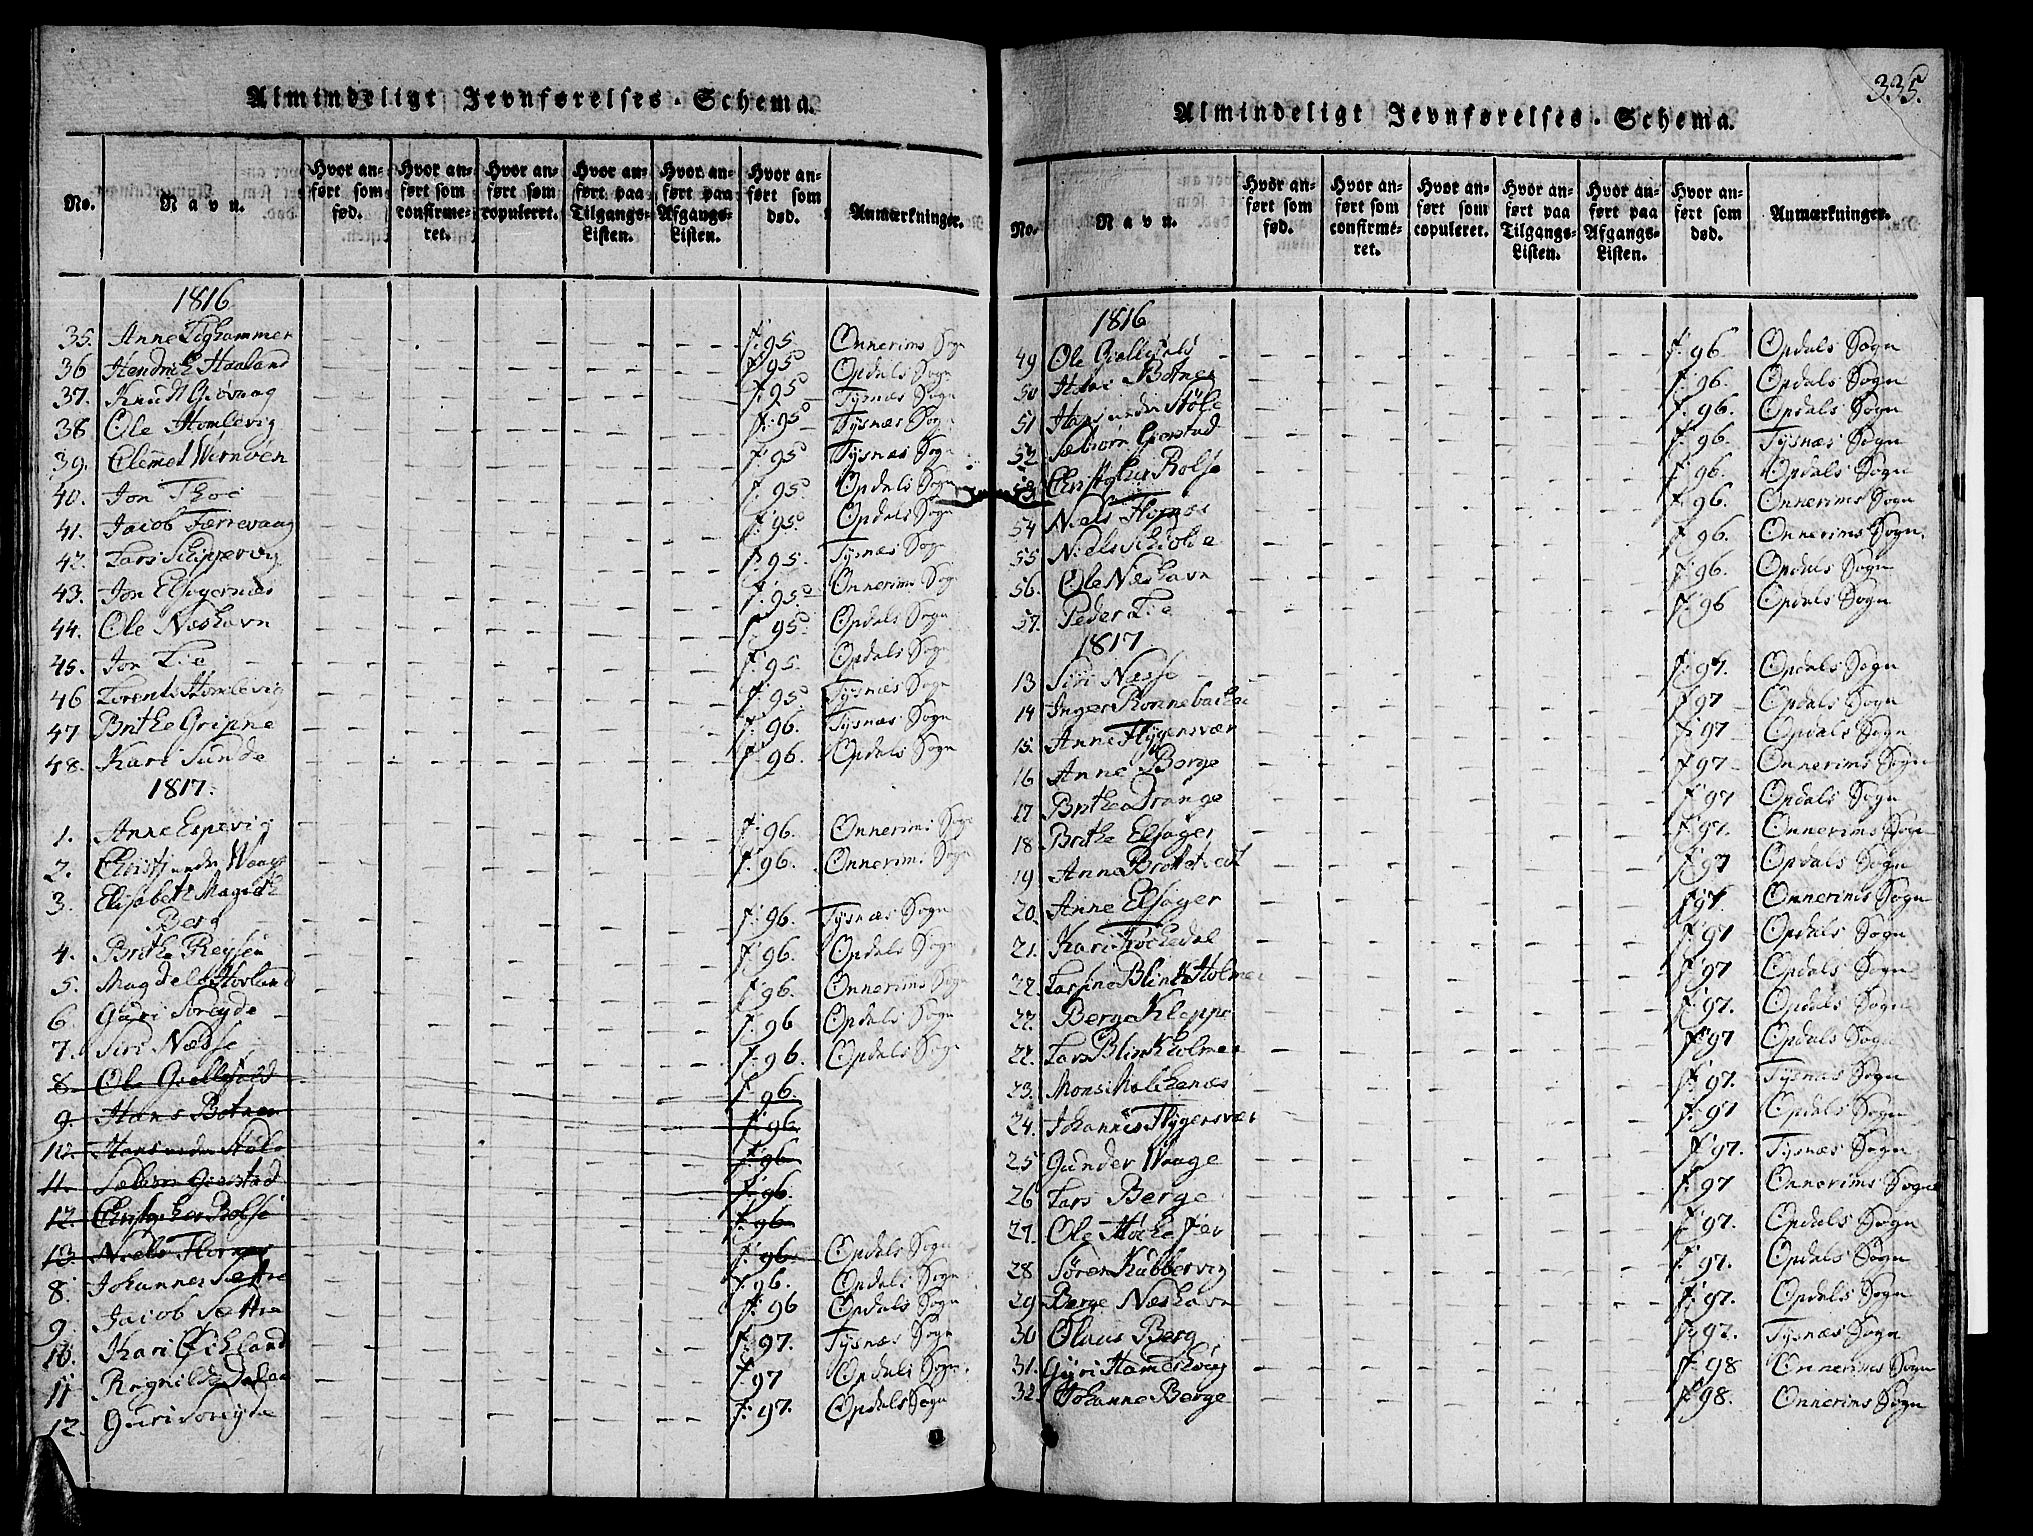 Almindeligt Jevnførelses-Schema.
No. Navn. Hvor anført som fød. Hvor anført som confirmeret. Hvor anført som copuleret. Hvor anført paa Tilgangs-Listen. Hvor anført paa Afgangs-Listen. Hvor anført som død. Anmærkninger.
1816
35. Anne Tighammer f. 95 Onnerims Sogn
36 Hendrich Haaland f. 95 Opdals Sogn
37. Knud Giøvaag f. 95 Tysnæs Sogn
38 Ole Homlevig f. 95 Tysnæs Sogn
39. Clemet Wernøen f. 95 Tysnæs Sogn
40. Jon Thoe f. 95 Opdals Sogn
41. Jacob Færrevaag f. 95 Opdals Sogn
42. Lars Schippervig f. 95. Tysnæs Sogn
43. Jon Elsagernæs f. 95 Onnerims Sogn
44. Ole Næshavn f. 95 Opdals Sogn
45. Jon Lie f. 95. Opdals Sogn
46 Lorents Homlevig f. 95 Tysnæs Sogn
47 Brithe Gripne f. 96. Tysnæs Sogn
48. Kari Sunde f. 96. Opdals Sogn
1817.
1. Anne Espevig f. 96. Onnerims Sogn
2. Christj under Waage f. 96. Onnerims Sogn
3. Elisabeth Magreth
Berg f. 96. Tysnæs Sogn
4. Brithe Reysøn f. 96. Opdals Sogn
5. Magdele Hovland f. 96. Onnerims Sogn
6. Guri Soreyde f. 96 Opdals Sogn
7. Siri Nædse f. 96. Opdals Sogn
8 Ole Giellesvold f. 96.
9. Hans Botnen f. 96
10. Hans under Støle f. 96
11. Sæbiørn Gierstad f. 96.
12 Christopher Rolse f. 96
13. Niels Flornes f. 96 Opdals Sogn
8. Johannes Sættre f. 96. Opdals Sogn
9 Jacob Sættre f. 96 Opdals Sogn
10. Kari Øchland f. 97. Tysnæs Sogn
11 Ragnilde Dalen f. 97 Opdals Sogn
12. Guri Soreyde f. 97. Opdals Sogn
335.
Almindeligt Jevnførelses-Schema.
No. Navn. Hvor anført som fød. Hvor anført som confirmeret. Hvor anført som copuleret. Hvor anført paa Tilgangs-Listen. Hvor anført paa Afgangs-Listen. Hvor anført som død. Anmærkninger.
1816
49 Ole Giellesvold f. 96 Opdals Sogn
50 Hans Botnen f. 96. Opdals Sogn
51 Hans under Støle f. 96. Opdals Sogn
52 Sæbiørn Gierstad f. 96. Tysnæs Sogn
53 Christopher Rolse f. 96. Opdals Sogn
54 Niels Flornæs f. 96. Onnerims Sogn
55 Niels Schiolse f. 96. Onnerims Sogn.
56. Ole Næshavn f. 96. Opdals Sogn
57. Peder Lie f. 96 Opdals Sogn
1817
13 Siri Næsse f. 97. Opdals Sogn
14 Inger Ronnebachen f. 97 Opdals Sogn
15. Anne Flygensvær f. 97 Opdals Sogn
16 Anne Berge f. 97 Onnerims Sogn
17 Brithe Drange f. 97 Opdals Sogn
18 Brithe Elsager f. 97. Onnerims Sogn
19 Anne Brottetvedt f. 97 Opdals Sogn
20. Anne Elsager f. 97 Onnerims Sogn
21. Kari Tøchedal f. 97 Opdals Sogn
22. Larsine Blink Holmen f. 97 Opdals Sogn
22. Berge Kleppe f. 97. Opdals Sogn
22. Lars Blinkholmen f. 97 Opdals Sogn
23. Mons Molchenæs f. 97. Tysnæs Sogn
24. Johannes Flygersvær f. 97 Opdals Sogn
25 Gunder Waage f. 97. Tysnæs Sogn
26 Lars Berge f. 97 Onnerims Sogn
27. Ole f. 97. Opdals Sogn
28 Søren Kubbervig f. 97. Opdals Sogn
29 Berge Næshavn f. 97. Opdals Sogn
30 Olaus Berg f. 97. Tysnæs Sogn
31. Gyri f. 98 Onnerims Sogn
32 Johanne Berge f. 98. Onnerims Sogn